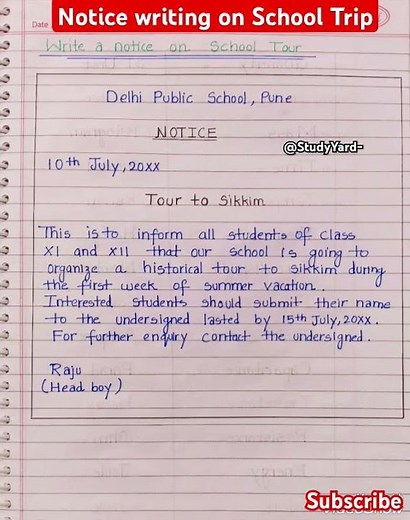 Notice writing on School Trip
Date
Write a notice on School Tour
Delhi Public School, Pune
NOTICE
@StudyYard-
10th July, 20XX
Tour to Sikkim
This is to inform all students of class
XI and XII that our school is going to
organize a historical tour to sikkim during
the first week of summer vacation.
Interested students should submit their name
to the undersigned lasted by 15th July, 20XX.
For further enquiry contact the undersigned.
Raju
(Head boy)
Subscribe